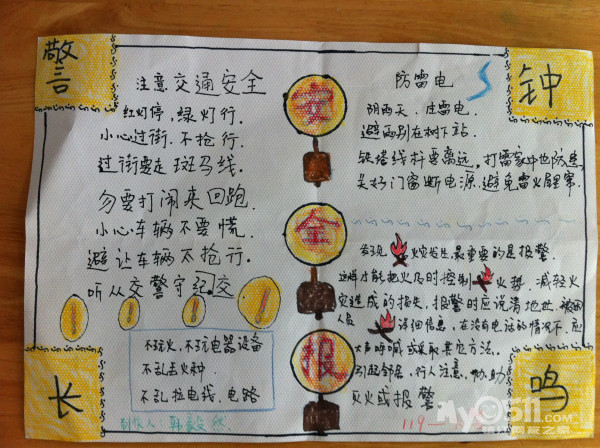 警
钟
长
鸣
安
全
报
注意交通安全
红灯停,绿灯行.
小心过街,不抢行.
过街要走斑马线.
勿要打闹来回跑.
小心车辆不要慌.
避让车辆不抢行.
听从交警守纪交.
不玩火,不玩电器设备
不乱丢火种
不乱拉电线、电路
制作人:韩
防雷电
阴雨天、过雷电.
避雨别在树下站.
铁塔线杆要离远,打雷家中也
关好门窗断电源.避免雷火屋里
发现火灾发生最重要的是报警.
这样才能把火及时控制火势,减轻火
灾造成的损失,报警时应说清地址、
人员详细信息,在没有电话的情况下,应
大声呼喊或采取其它方法.
引起邻居、行人注意,协助
灭火或报警
119
my0511.com